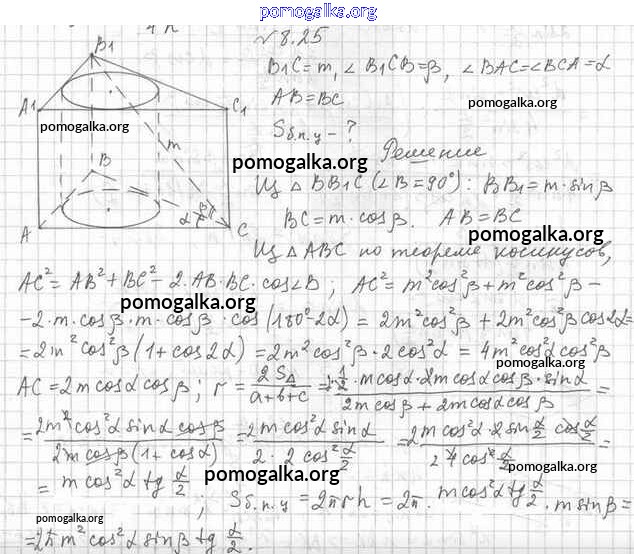 pomogalka.org
№8.25
B₁C=m, ∠B₁CB=β, ∠BAC=∠BCA=α
AB=BC
Sб.п.ц – ?
Решение
Из △BB₁C (∠B=90°): BB₁=m·sinβ
BC=m·cosβ. AB=BC
Из △ABC по теореме косинусов,
AC²=AB²+BC²-2·AB·BC·cos∠B; AC²=m²cos²β+m²cos²β-
-2·m·cosβ·m·cosβ·cos(180°-2α)=2m²cos²β+2m²cos²βcos2α=
=2m²cos²β(1+cos2α)=2m²cos²β·2cos²α=4m²cos²αcos²β
AC=2mcosαcosβ; r=2S△/(a+b+c)=2·1/2·mcosα·2mcosαcosβ·sinα/(2mcosβ+2mcosαcosβ)=
=2m²cos²αsinαcosβ/(2mcosβ(1+cosα))=2mcos²αsinα/(2·2cos²α/2)=2mcos²α·2sinα/2cosα/2/(4cos²α/2)=
=mcos²αtgα/2; Sб.п.ц=2πrh=2π·mcos²αtgα/2·msinβ=
=2πm²cos²αsinβtgα/2.
B₁
A₁
C₁
m
B
α
β
A
C
pomogalka.org
pomogalka.org
pomogalka.org
pomogalka.org
pomogalka.org
pomogalka.org
pomogalka.org
pomogalka.org
pomogalka.org
pomogalka.org